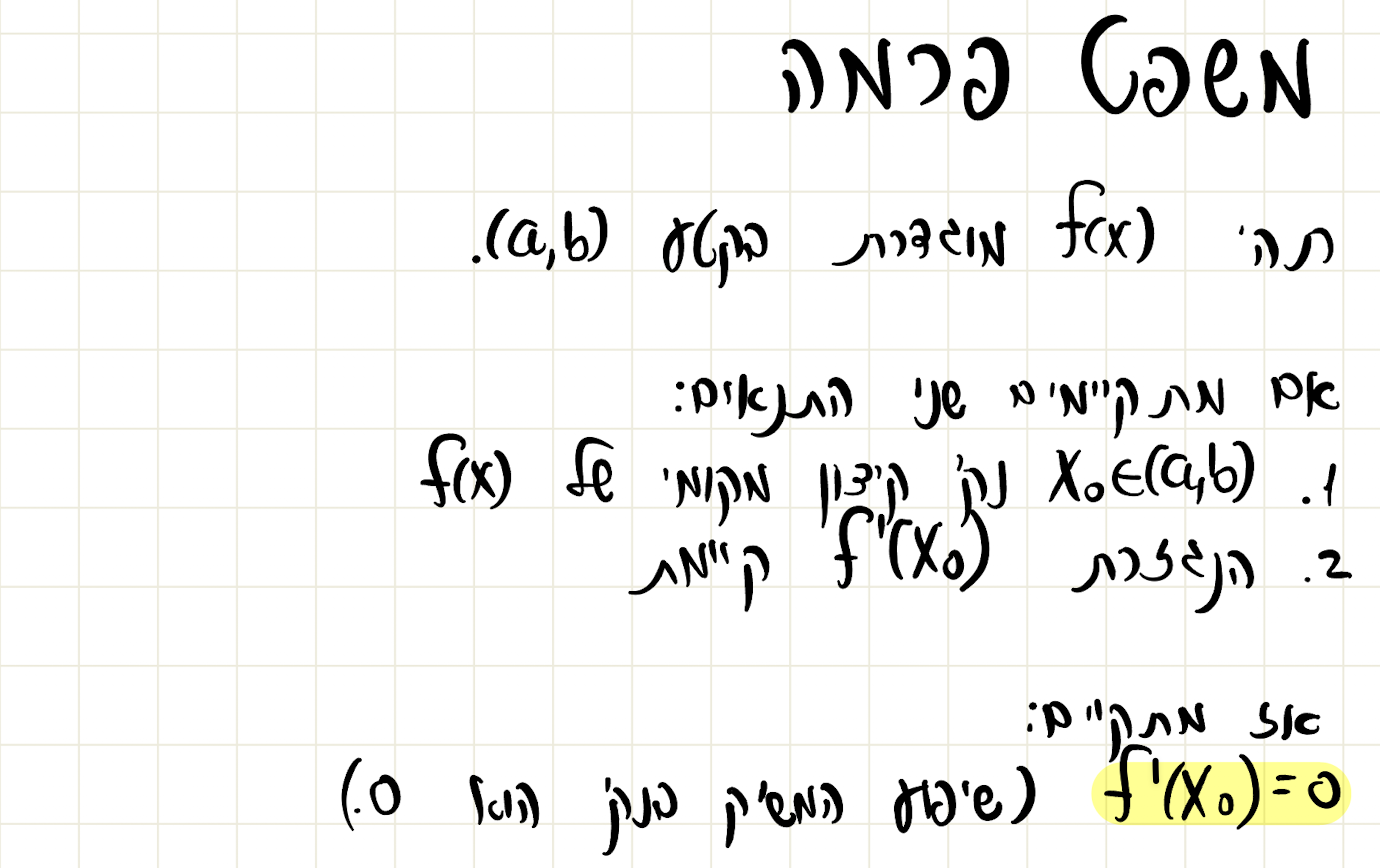 משפט פרמה
תהי f(x) מוגדרת בקטע (a,b).
אם מתקיימים שני התנאים:
1. x₀∈(a,b) נק' קיצון מקומי של f(x)
2. הנגזרת f'(x₀) קיימת
אז מתקיים:
f'(x₀)=0 (שיפוע המשיק בנק' הוא 0.)